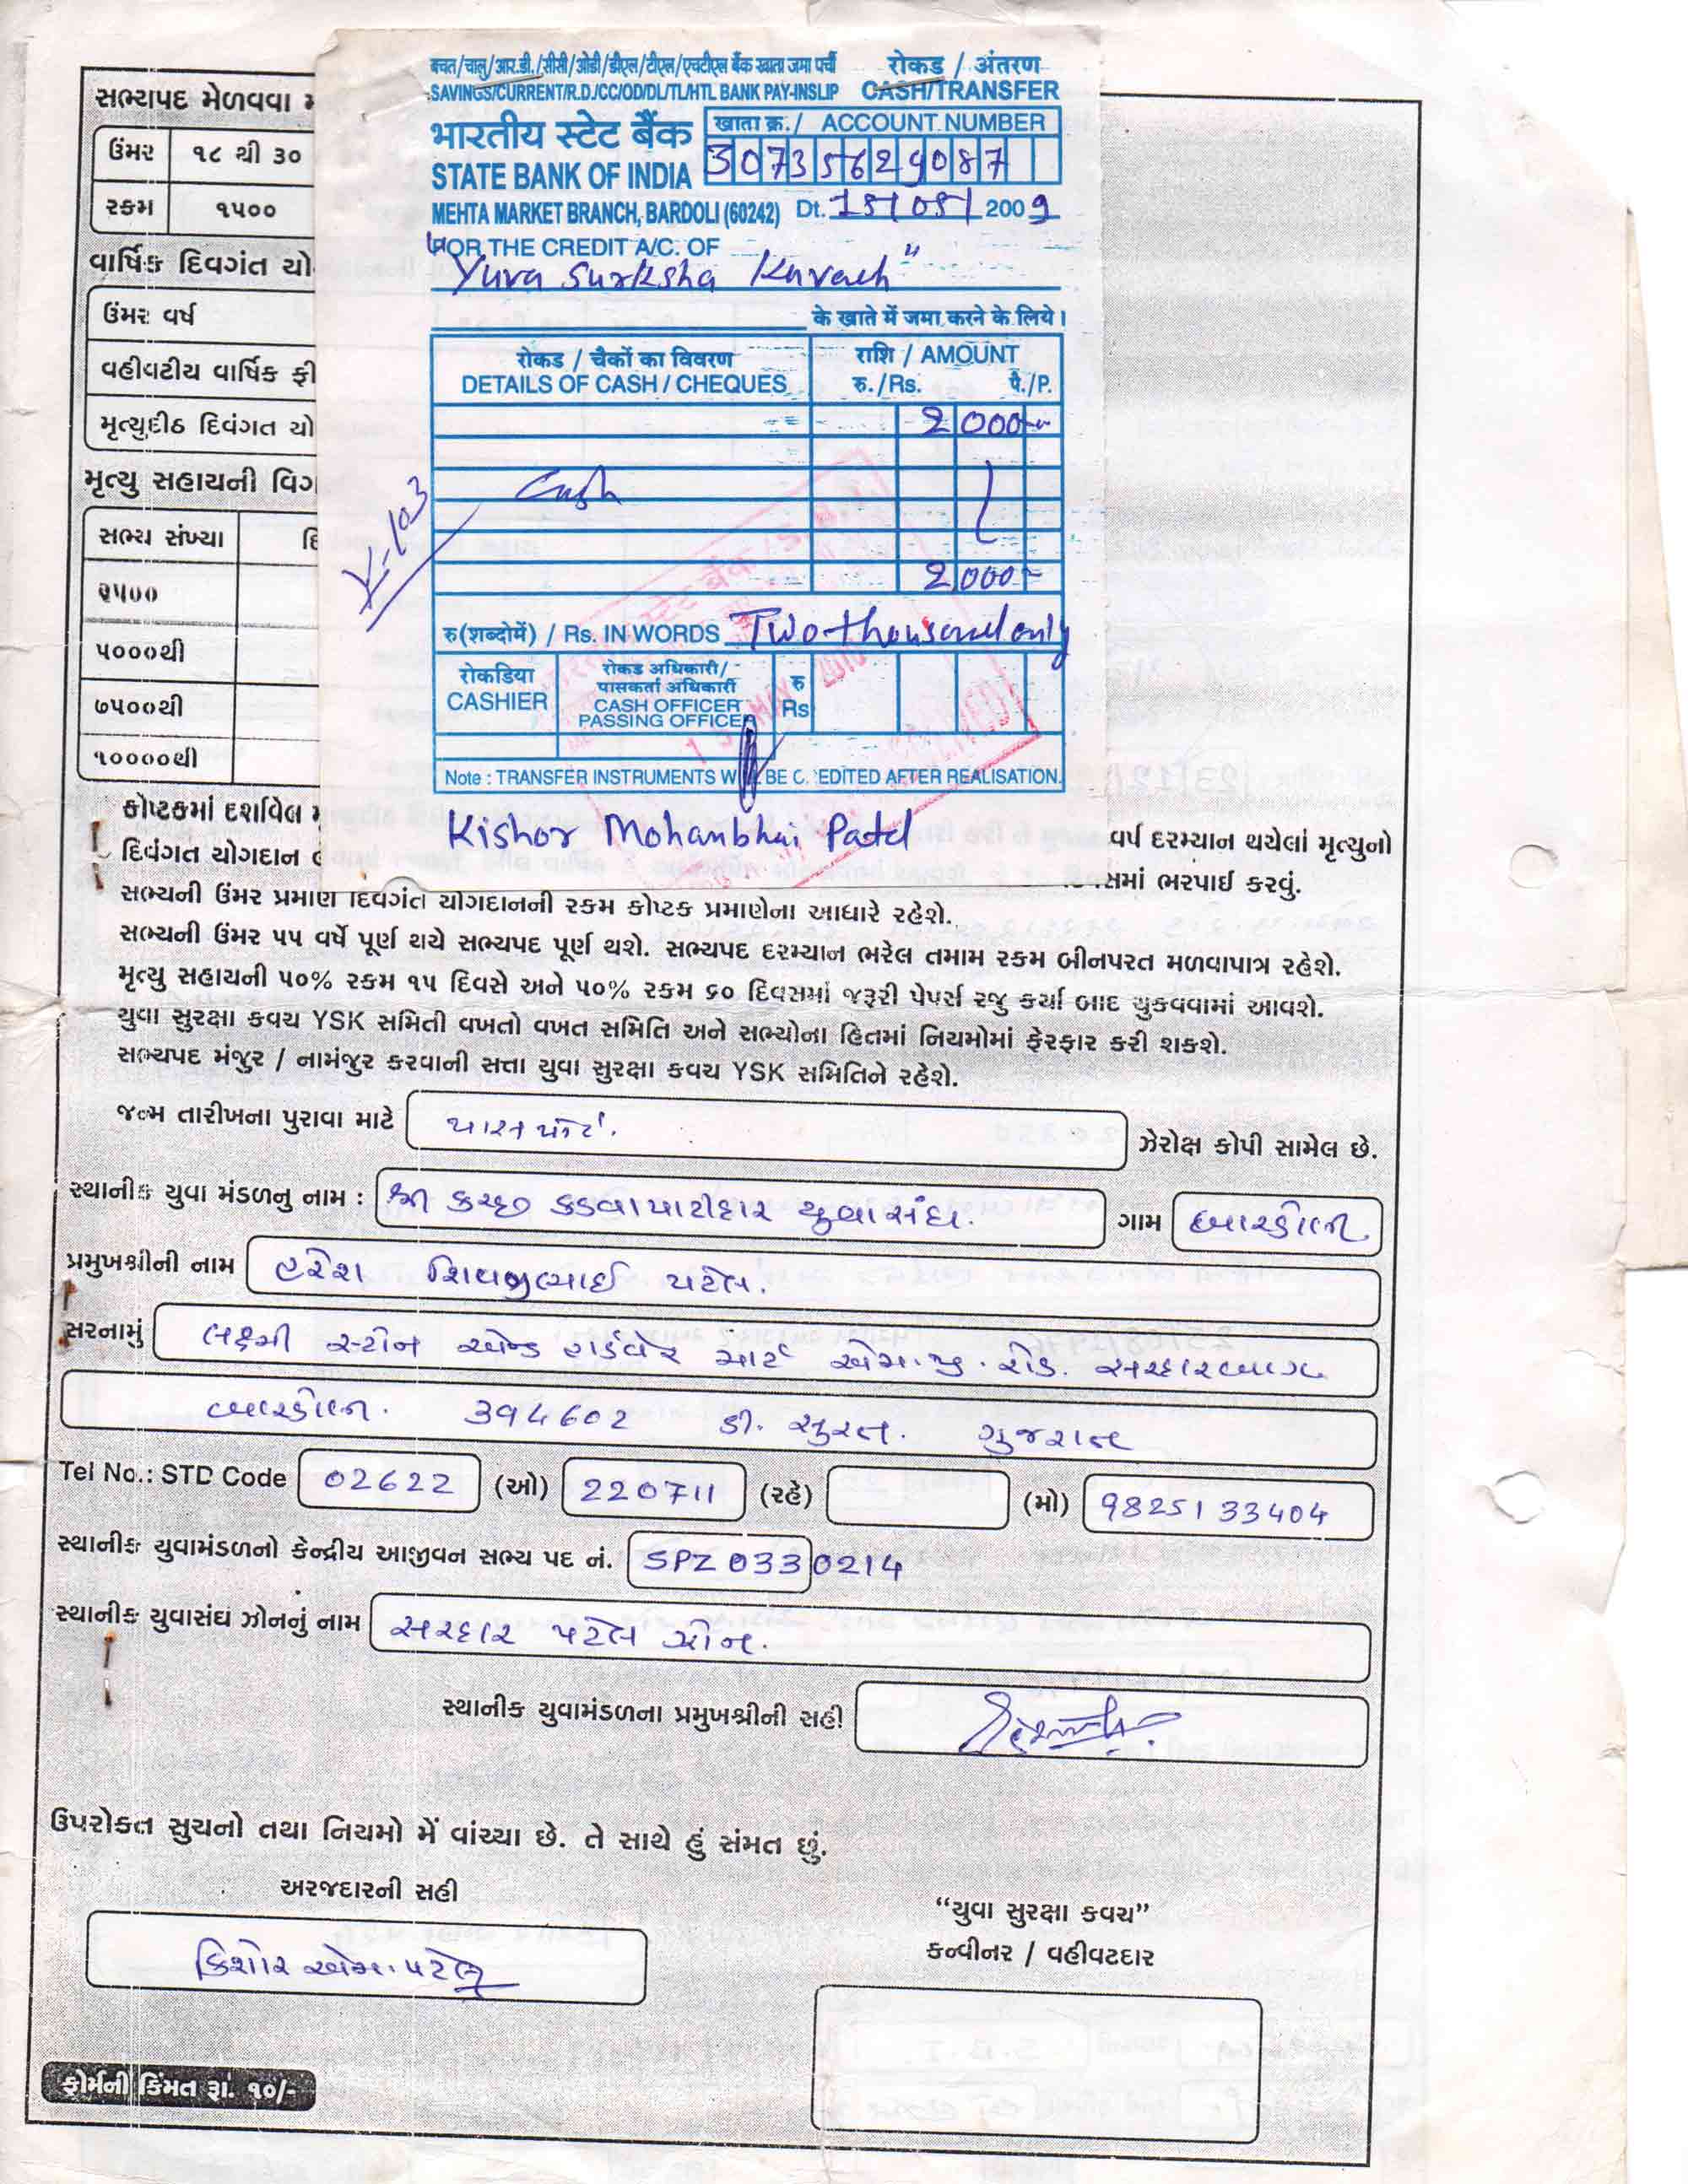 बचत/चालु/आर.डी./सीसी/ओडी/डीएल/टीएल/एचटीएल बैंक खाता जमा पर्ची रोकड / अंतरण
SAVINGS/CURRENT/R.D./CC/OD/DL/TL/HTL BANK PAY-INSLIP CASH/TRANSFER
भारतीय स्टेट बैंक खाता क्र./ ACCOUNT NUMBER
STATE BANK OF INDIA 30735629087
MEHTA MARKET BRANCH, BARDOLI (60242) Dt. 15/05/2009
FOR THE CREDIT A/C. OF
"Yuva Surksha Kavach"
के खाते में जमा करने के लिये।
रोकड / चैकों का विवरण राशि / AMOUNT
DETAILS OF CASH / CHEQUES रु./Rs. पै./P.
2000
Cash
2000
रु(शब्दोमें) / Rs. IN WORDS Two thousand only
रोकडिया रोकड अधिकारी/ रु
CASHIER पासकर्ता अधिकारी Rs
CASH OFFICER
PASSING OFFICER
Note : TRANSFER INSTRUMENTS WILL BE CREDITED AFTER REALISATION.
K-103
Kishor Mohanbhai Patel
સભ્યપદ મેળવવા
ઉંમર ૧૮ થી ૩૦
રકમ ૧૫૦૦
વાર્ષિક દિવગંત યો
ઉંમર વર્ષ
વહીવટીય વાર્ષિક ફી
મૃત્યુદીઠ દિવંગત યો
મૃત્યુ સહાયની વિગ
સભ્ય સંખ્યા
૨૫૦૦
૫૦૦૦થી
૭૫૦૦થી
૧૦૦૦૦થી
કોષ્ટકમાં દર્શાવેલ વર્ષ દરમ્યાન થયેલાં મૃત્યુનો
દિવંગત યોગદાન સમાં ભરપાઈ કરવું.
સભ્યની ઉંમર પ્રમાણ દિવગંત યોગદાનની રકમ કોષ્ટક પ્રમાણેના આધારે રહેશે.
સભ્યની ઉંમર ૫૫ વર્ષે પૂર્ણ થયે સભ્યપદ પૂર્ણ થશે. સભ્યપદ દરમ્યાન ભરેલ તમામ રકમ બીનપરત મળવાપાત્ર રહેશે.
મૃત્યુ સહાયની ૫૦% રકમ ૧૫ દિવસે અને ૫૦% રકમ ૬૦ દિવસમાં જરૂરી પેપર્સ રજુ કર્યા બાદ ચુકવવામાં આવશે.
યુવા સુરક્ષા કવચ YSK સમિતી વખતો વખત સમિતિ અને સભ્યોના હિતમાં નિયમોમાં ફેરફાર કરી શકશે.
સભ્યપદ મંજુર / નામંજુર કરવાની સત્તા યુવા સુરક્ષા કવચ YSK સમિતિને રહેશે.
જન્મ તારીખના પુરાવા માટે પાસપોર્ટ. ઝેરોક્ષ કોપી સામેલ છે.
સ્થાનીક યુવા મંડળનુ નામ : શ્રી કચ્છ કડવા પાટીદાર યુવા સંઘ. ગામ બારડોલી
પ્રમુખશ્રીની નામ હરેશ શિવજીભાઈ પટેલ.
સરનામું લક્ષ્મી સ્ટોન એન્ડ હાર્ડવેર માર્ટ એમ.જી. રોડ. સરદારબાગ
બારડોલી. 394602 ડી. સુરત. ગુજરાત
Tel No.: STD Code 02622 (ઓ) 220711 (રહે) (મો) 9825133404
સ્થાનીક યુવામંડળનો કેન્દ્રીય આજીવન સભ્ય પદ નં. SPZ 0330214
સ્થાનીક યુવાસંઘ ઝોનનું નામ સરદાર પટેલ ઝોન.
સ્થાનીક યુવામંડળના પ્રમુખશ્રીની સહી
ઉપરોક્ત સુચનો તથા નિયમો મેં વાંચ્યા છે. તે સાથે હું સંમત છું.
અરજદારની સહી
કિશોર એમ. પટેલ
"યુવા સુરક્ષા કવચ"
કન્વીનર / વહીવટદાર
ફોર્મની કિંમત રૂા. ૧૦/-